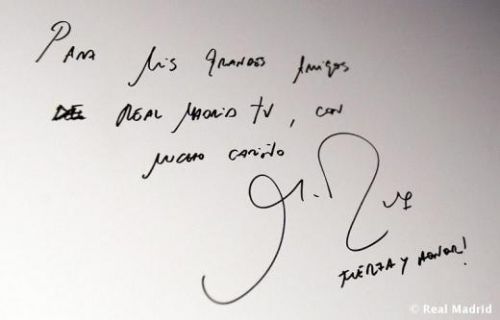 Para mis grandes amigos
DE REAL MADRID TV, con
mucho cariño
FUERZA Y HONOR!
© Real Madrid